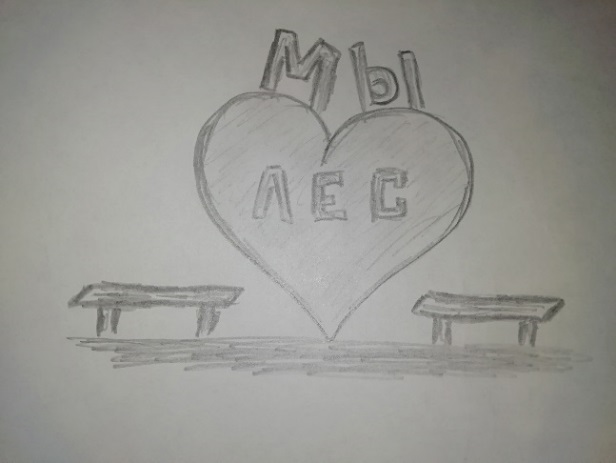 МЫ
ЛЕС